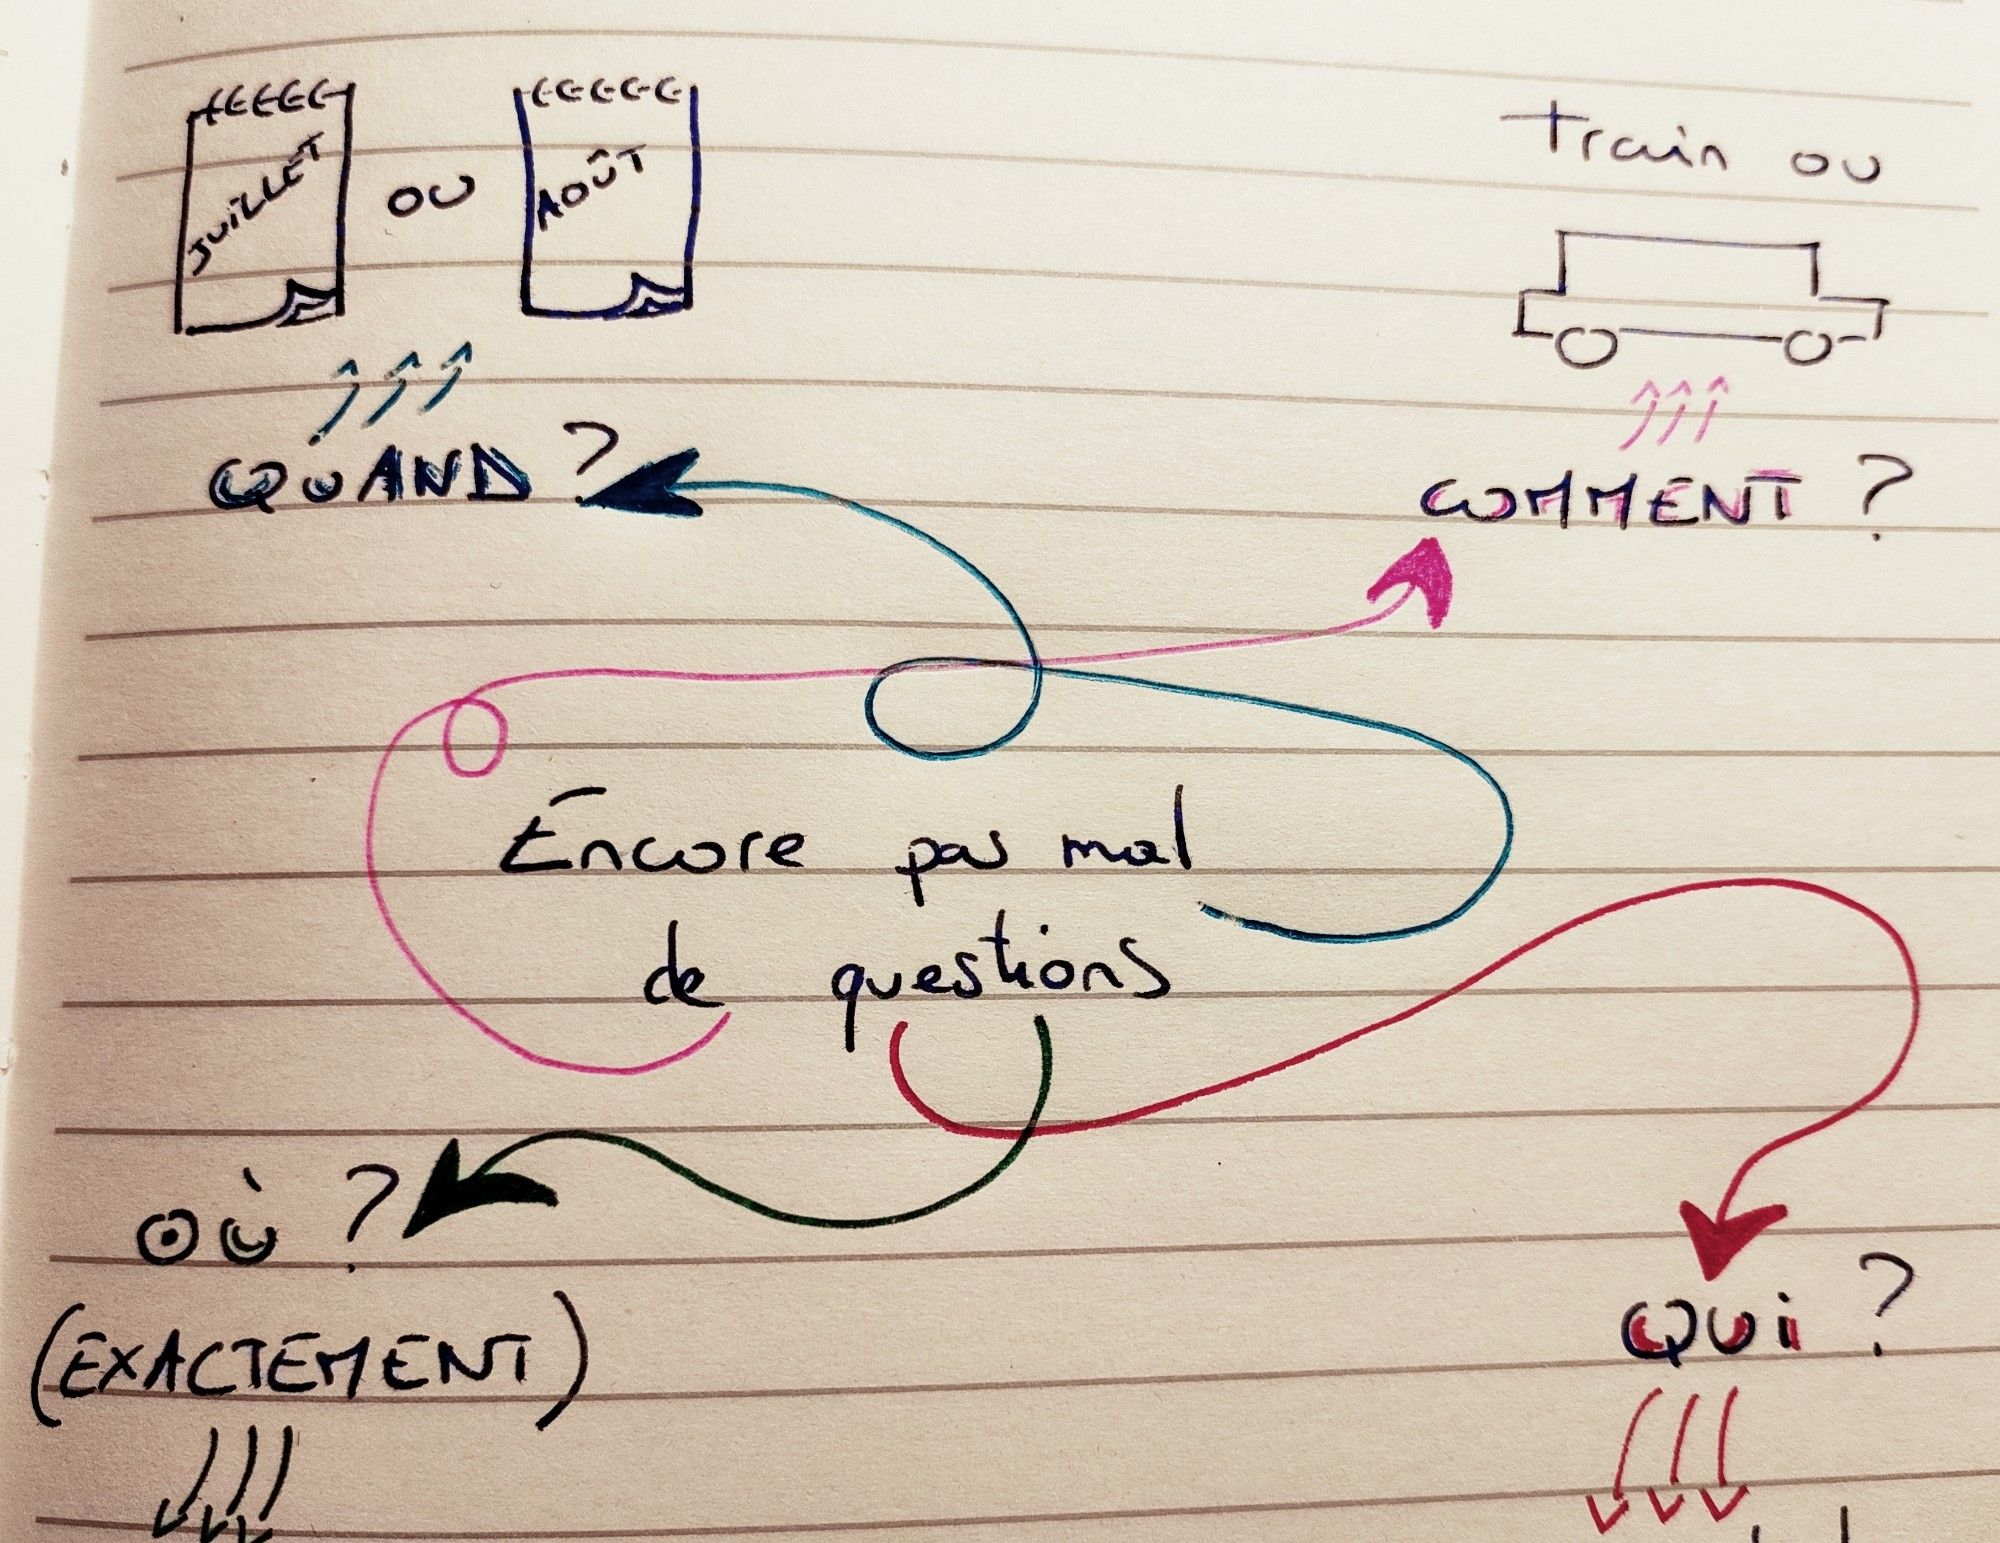 JUILLET
OU
AOÛT
Train ou
QUAND ?
COMMENT ?
Encore pas mal
de questions
OÙ ?
(EXACTEMENT)
QUI ?